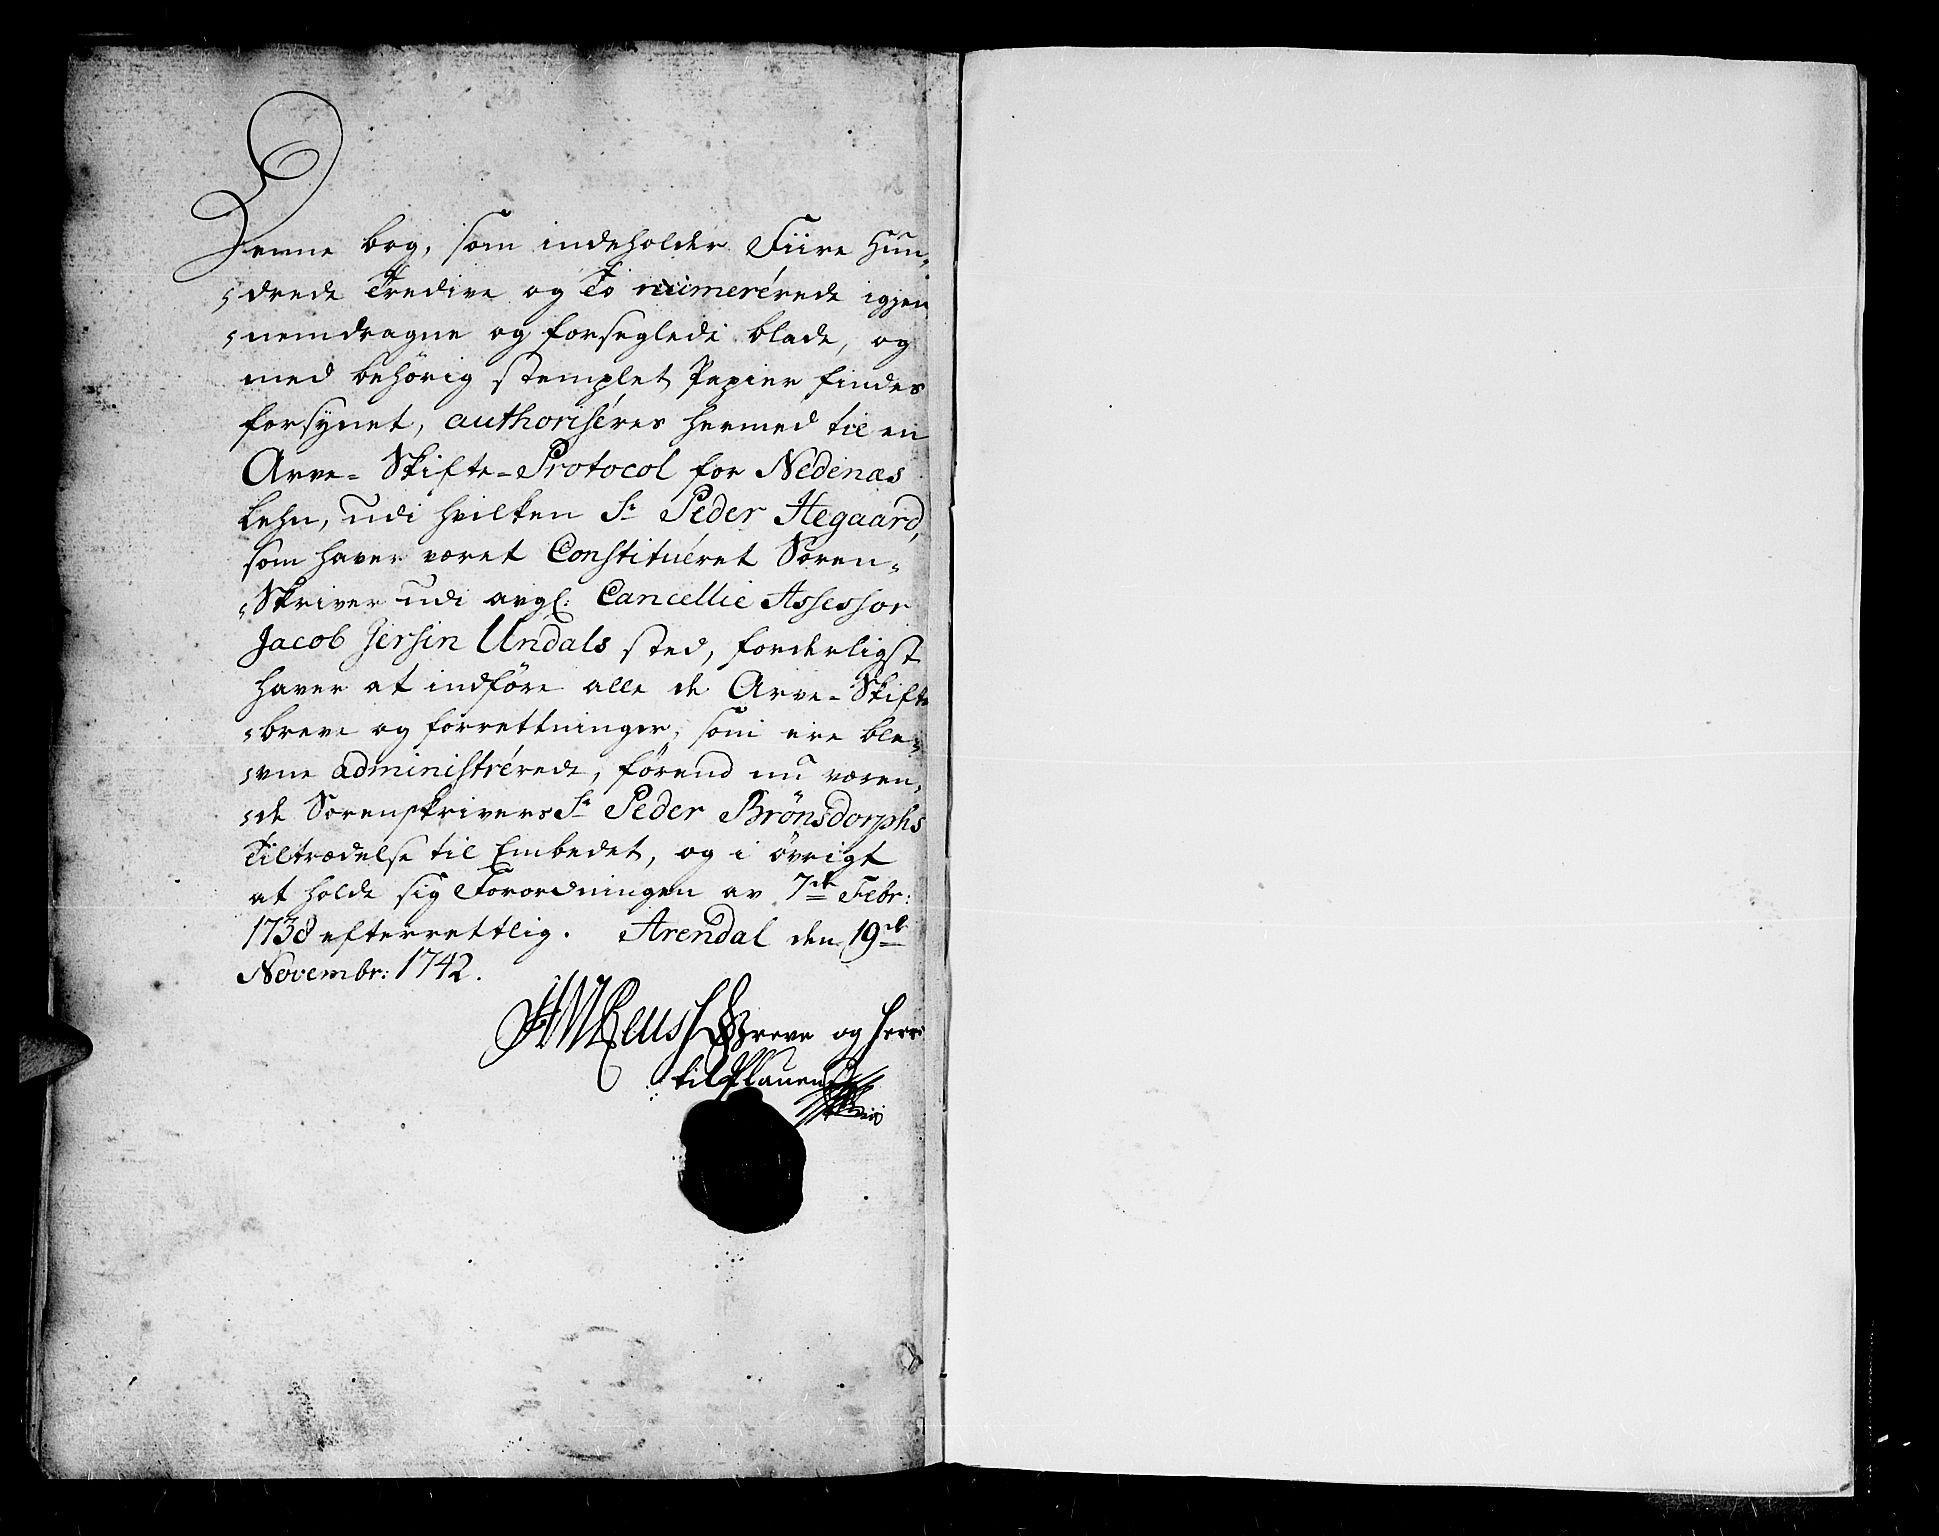 Denne bog, som indeholder Fiire Hun-
drede Tredive og To numerérede igjen
nemdragne og forseglede blade, og
med behörig stemplet Papier findes
forsynet, authoriséres hermed til en
Arve-Skifte-Protocol for Nedenæs
Lehn, udi hvilken Sr. Peder Hegaard,
som haver været Constituéret Soren-
Skriver udi avgl: Cancellie Assessor
Jacob Jersin Undals sted, forderligst
haver at indföre alle de Arve-Skifte
breve og forrettninger, som ere ble-
vne administrérede, förend nu væren-
de Sorenskrivers Sr. Peder Brönsdorphs
Tiltrædelse til Embedet, og i övrigt
at holde sig Forordningen av 7de Febr:
1738 efterrettlig. Arendal den 19de
Novembr: 1742.
HVIReuss Greve og Herre
til Plauen